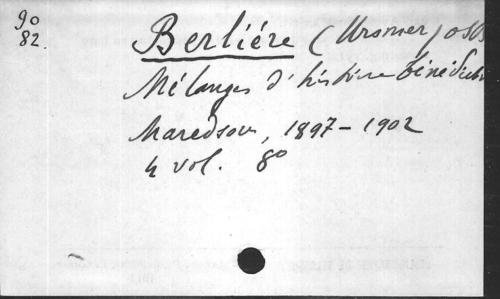 90
82.
Berliére (Ursmer) OSB
Mélanges d'histoire bénédict
Maredsous, 1897-1902
4 vol. 8º